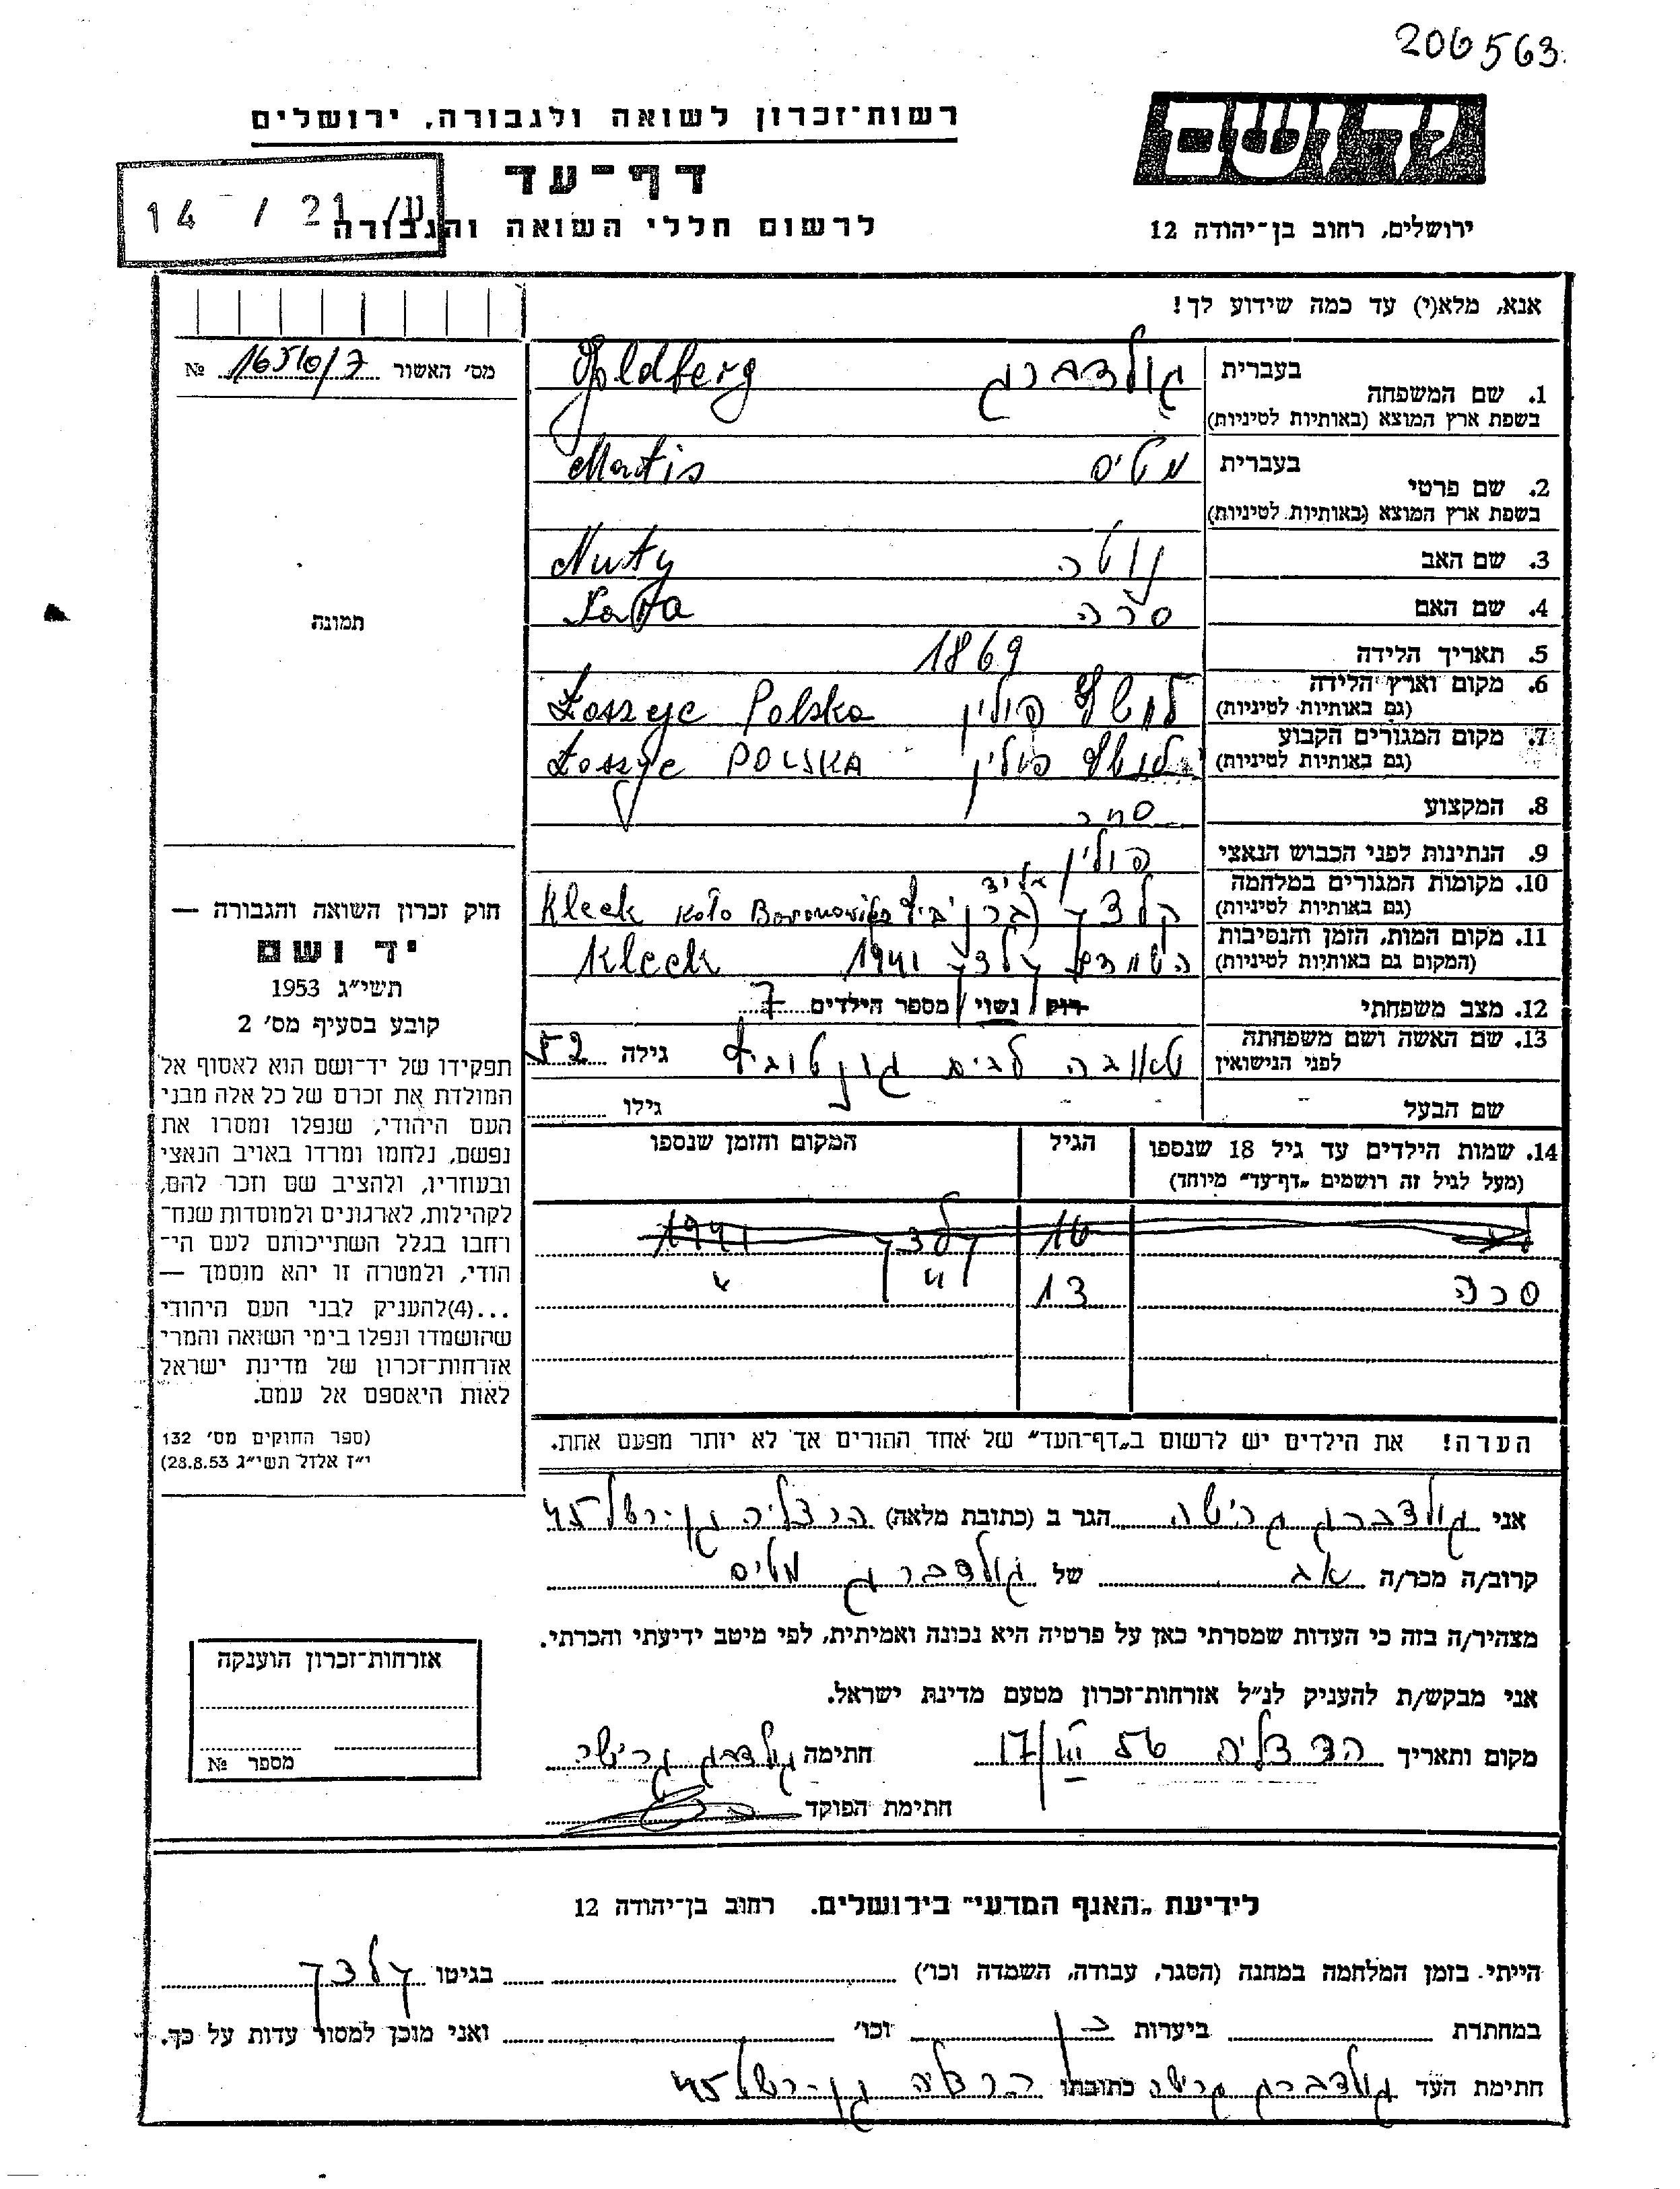 206563
רשות־זכרון לשואה ולגבורה, ירושלים
יד ושם
דף־עד
14 / 21 /
לרשום חללי השואה והגבורה
ירושלים, רחוב בן־יהודה 12
אנא, מלא(י) עד כמה שידוע לך!
מס׳ האשור № 16510/7
1. שם המשפחה בעברית גולדברג Goldberg
בשפת ארץ המוצא (באותיות לטיניות)
2. שם פרטי בעברית מטיס Matis
בשפת ארץ המוצא (באותיות לטיניות)
3. שם האב נוטה Nuty
4. שם האם שרה Sara
תמונה
5. תאריך הלידה 1869
6. מקום וארץ הלידה פולין Łoszyc Polska
(גם באותיות לטיניות)
7. מקום המגורים הקבוע פולין Łoszyc POLSKA
(גם באותיות לטיניות)
8. המקצוע סחר
9. הנתינות לפני הכבוש הנאצי פולין
10. מקומות המגורים במלחמה קלצק Kleck koło
(גם באותיות לטיניות)
11. מקום המות, הזמן והנסיבות קלצק 1941 Kleck
(המקום גם באותיות לטיניות)
12. מצב משפחתי רוק / נשוי / מספר הילדים 7
13. שם האשה ושם משפחתה לפני הנישואין טאובה לבית גילה 52
שם הבעל - - גילו
14. שמות הילדים עד גיל 18 שנספו הגיל המקום והזמן שנספו
(מעל לגיל זה רושמים „דף־עד״ מיוחד)
16 קלצק 1941
שרה 13 " "
הערה! את הילדים יש לרשום ב„דף־העד״ של אחד ההורים אך לא יותר מפעם אחת.
חוק זכרון השואה והגבורה —
יד ושם
תשי״ג 1953
קובע בסעיף מס׳ 2
תפקידו של יד־ושם הוא לאסוף אל
המולדת את זכרם של כל אלה מבני
העם היהודי, שנפלו ומסרו את
נפשם, נלחמו ומרדו באויב הנאצי
ובעוזריו, ולהציב שם וזכר להם,
לקהילות, לארגונים ולמוסדות שנח־
רחבו בגלל השתייכותם לעם הי־
הודי, ולמטרה זו יהא מוסמך —
...(4)להעניק לבני העם היהודי
שהושמדו ונפלו בימי השואה והמרי
אזרחות־זכרון של מדינת ישראל
לאות היאספם אל עמם.
(ספר החוקים מס׳ 132
י״ז אלול תשי״ג 28.8.53)
אני גולדברג גרישה הגר ב (כתובת מלאה) הרצליה גן-רשל 45
קרוב/ה מכר/ה של גולדברג מטיס
מצהיר/ה בזה כי העדות שמסרתי כאן על פרטיה היא נכונה ואמיתית, לפי מיטב ידיעתי והכרתי.
אני מבקש/ת להעניק לנ״ל אזרחות־זכרון מטעם מדינת ישראל.
מקום ותאריך הרצליה 17/VII 56 חתימה גולדברג גרישה
חתימת הפוקד
אזרחות־זכרון הוענקה
מספר №
לידיעת „האגף המדעי״ בירושלים. רחוב בן־יהודה 12
הייתי בזמן המלחמה במחנה (הסגר, עבודה, השמדה וכו׳) בגיטו קלצק
במחתרת ביערות כן וכו׳ ואני מוכן למסור עדות על כך.
חתימת העד גולדברג גרישה כתובתו הרצליה גן-רשל 45